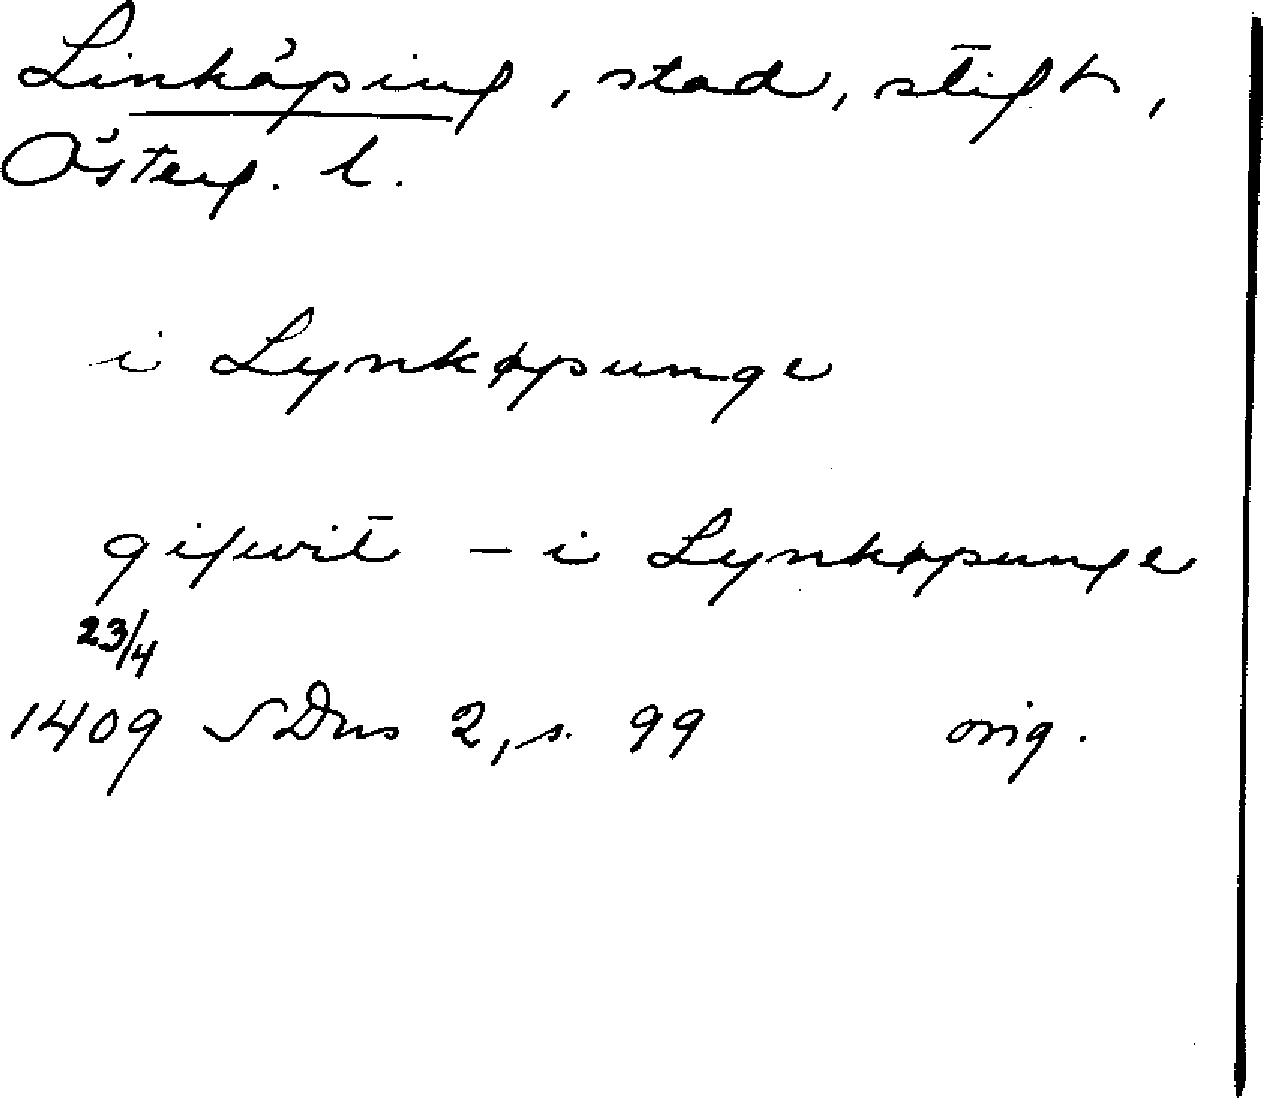 Linköping, stad, stift,
Österg. l.
i Lynkøpunge
gifwit - i Lynkøpunge
23/4
1409 SDns 2, s. 99 orig.